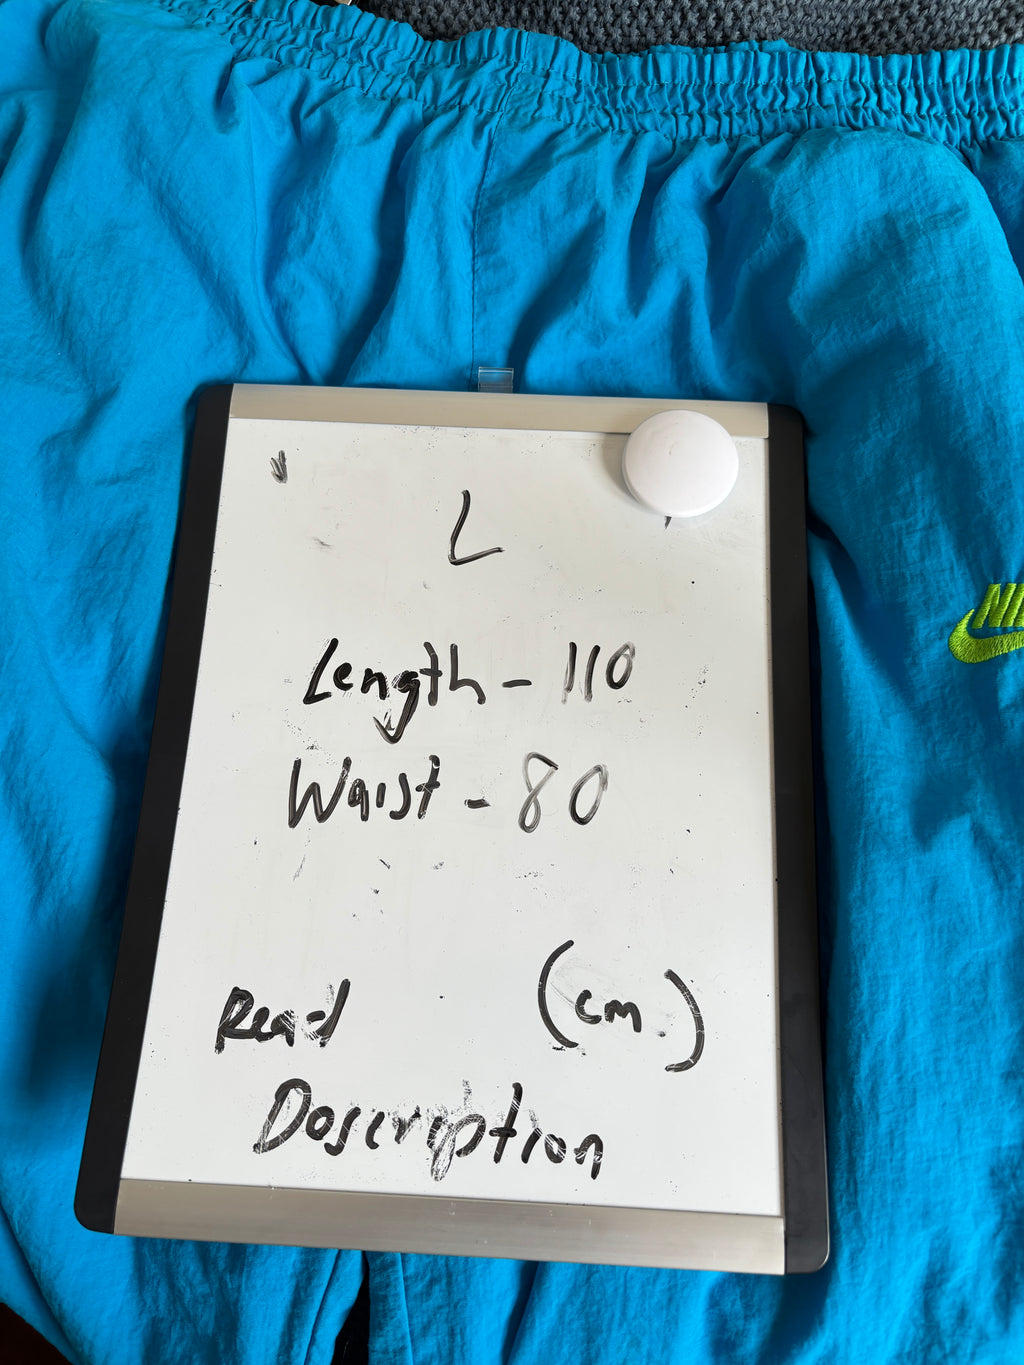 L
Length - 110
Waist - 80
Read (cm)
Doscription